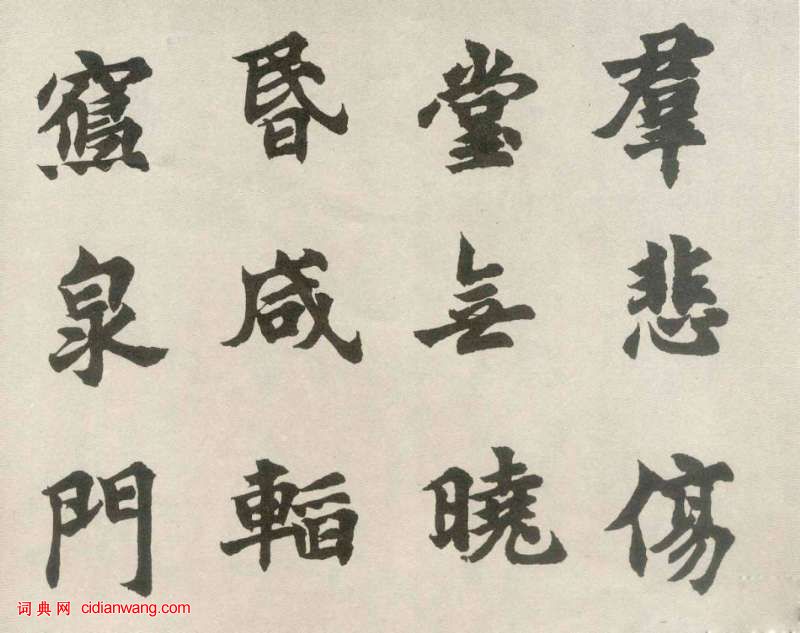 羣悲傷
堂無曉
昏咸
泉門
词典网 cidianwang.com